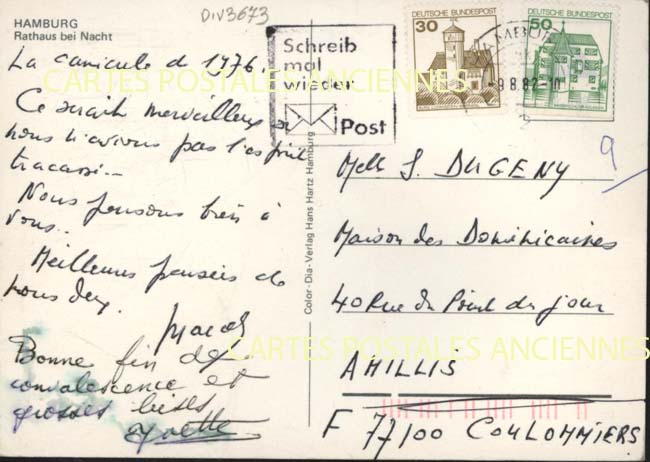 DIV3673
HAMBURG
Rathaus bei Nacht
La canicule d 1976.
Ce serait merveilleux si
nous n'avions pas l'esprit
tracassé...
Nous pensons bien à
vous..
Meilleures pensées de
nous deux.
Bonne fin de
convalescence et
grosses bises
Yvette
Color-Dia-Verlag Hans Hartz Hamburg
Schreib
mal
wieder
Post
DEUTSCHE BUNDESPOST
30
DEUTSCHE BUNDESPOST
50
-9.8.82-10
9
Melle S. DUGENY
Maison des Dominicaines
40 Rue du Point du jour
AMILLIS
F 77100 COULOMMIERS
CARTES POSTALES ANCIENNES
CARTES POSTALES ANCIENNES